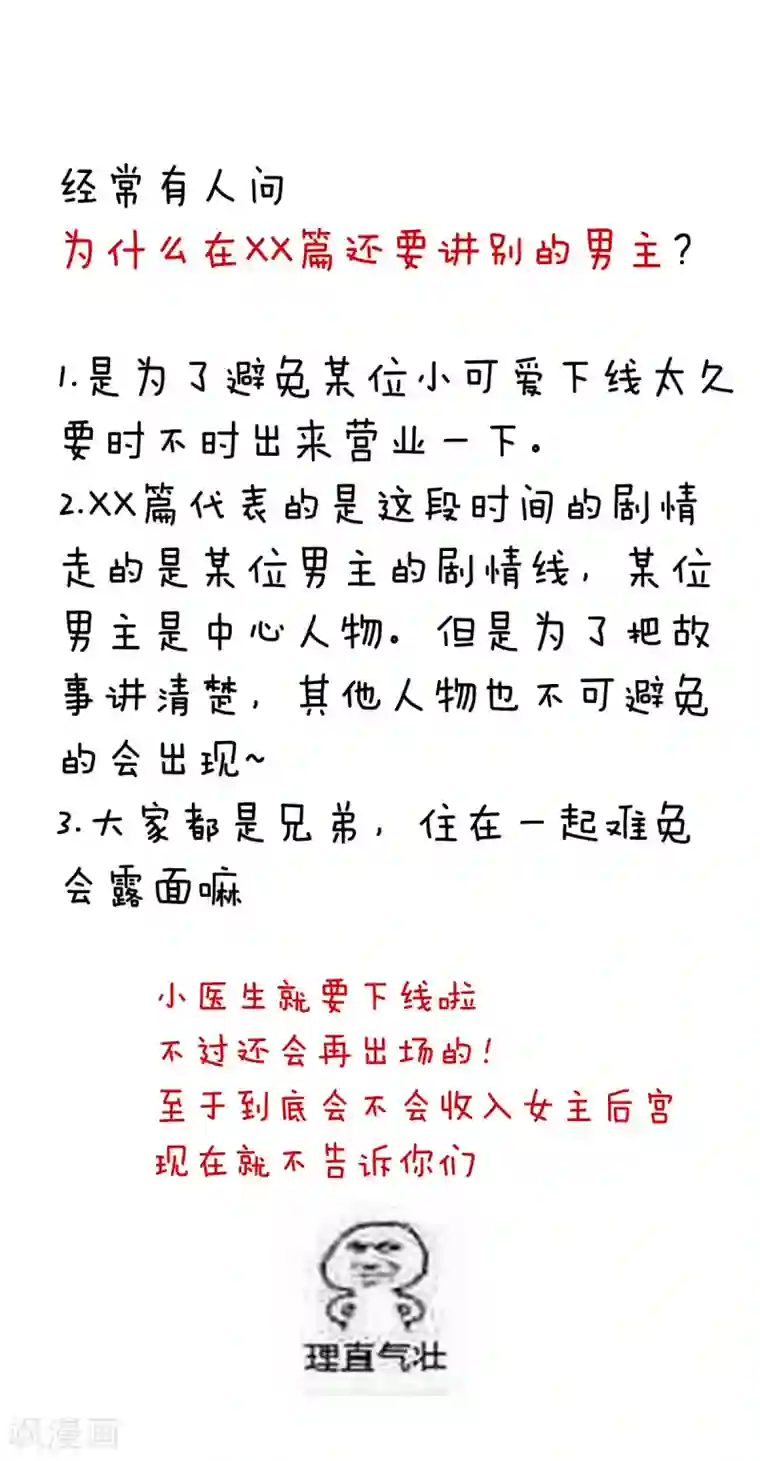 经常有人问
为什么在XX篇还要讲别的男主?
1.是为了避免某位小可爱下线太久
要时不时出来营业一下。
2.XX篇代表的是这段时间的剧情
走的是某位男主的剧情线，某位
男主是中心人物。但是为了把故
事讲清楚，其他人物也不可避免
的会出现~
3.大家都是兄弟，住在一起难免
会露面嘛
小医生就要下线啦
不过还会再出场的!
至于到底会不会收入女主后宫
现在就不告诉你们
理直气壮
飒漫画